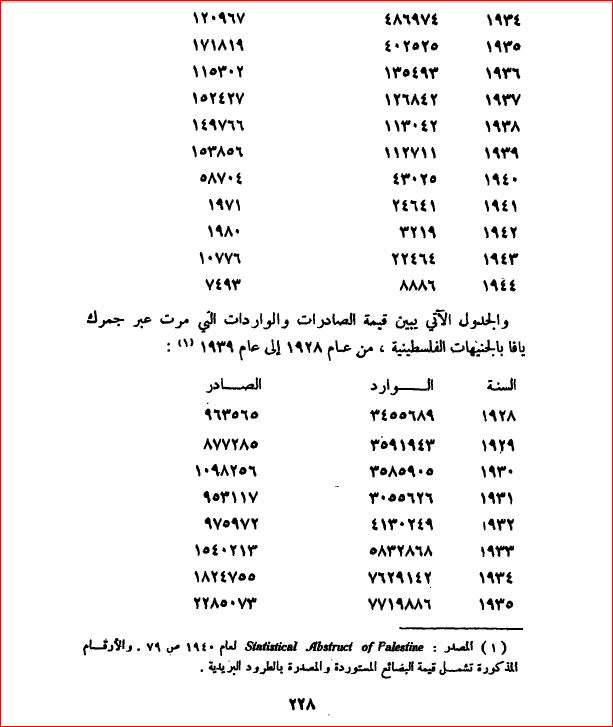 ١٩٣٤ ٤٨٦٩٧٤ ١٢٠٩٦٧
١٩٣٥ ٤٠٢٥٢٥ ١٧١٨١٩
١٩٣٦ ١٣٥٤٩٣ ١١٥٣٠٢
١٩٣٧ ١٢٦٨٤٢ ١٥٢٤٢٧
١٩٣٨ ١١٣٠٤٢ ١٤٩٧٦٦
١٩٣٩ ١١٢٧١١ ١٥٣٨٥٦
١٩٤٠ ٤٣٠٢٥ ٥٨٧٠٤
١٩٤١ ٢٤٦٤١ ١٩٧١
١٩٤٢ ٣٢١٩ ١٩٨٠
١٩٤٣ ٢٢٤٦٤ ١٠٧٧٦
١٩٤٤ ٨٨٨٦ ٧٤٩٣
والجدول الآتي يبين قيمة الصادرات والواردات التي مرت عبر جمرك
يافا بالجنيهات الفلسطينية ، من عام ١٩٢٨ إلى عام ١٩٣٩ (١) :
السنة الــوارد الصــادر
١٩٢٨ ٣٤٥٥٦٨٩ ٩٦٣٥٦٥
١٩٢٩ ٣٥٩١٩٤٣ ٨٧٧٢٨٥
١٩٣٠ ٣٥٨٥٩٠٥ ١٠٩٨٢٥٦
١٩٣١ ٣٠٥٥٦٢٦ ٩٥٣١١٧
١٩٣٢ ٤١٣٠٢٤٩ ٩٧٥٩٧٢
١٩٣٣ ٥٨٣٢٨٦٨ ١٥٤٠٢١٣
١٩٣٤ ٧٦٢٩١٤٢ ١٨٢٤٧٥٥
١٩٣٥ ٧٧١٩٨٨٦ ٢٢٨٥٠٧٣
(١) المصدر : Statistical Abstruct of Palestine لعام ١٩٤٠ ص ٧٩ . والأرقام
المذكورة تشمل قيمة البضائع المستوردة والمصدرة بالطرود البريدية .
٢٢٨